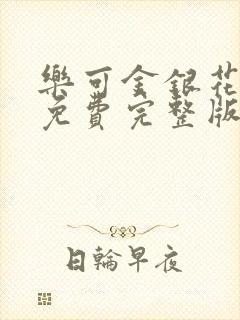 樂可金銀花
免費完整版
日輪早夜